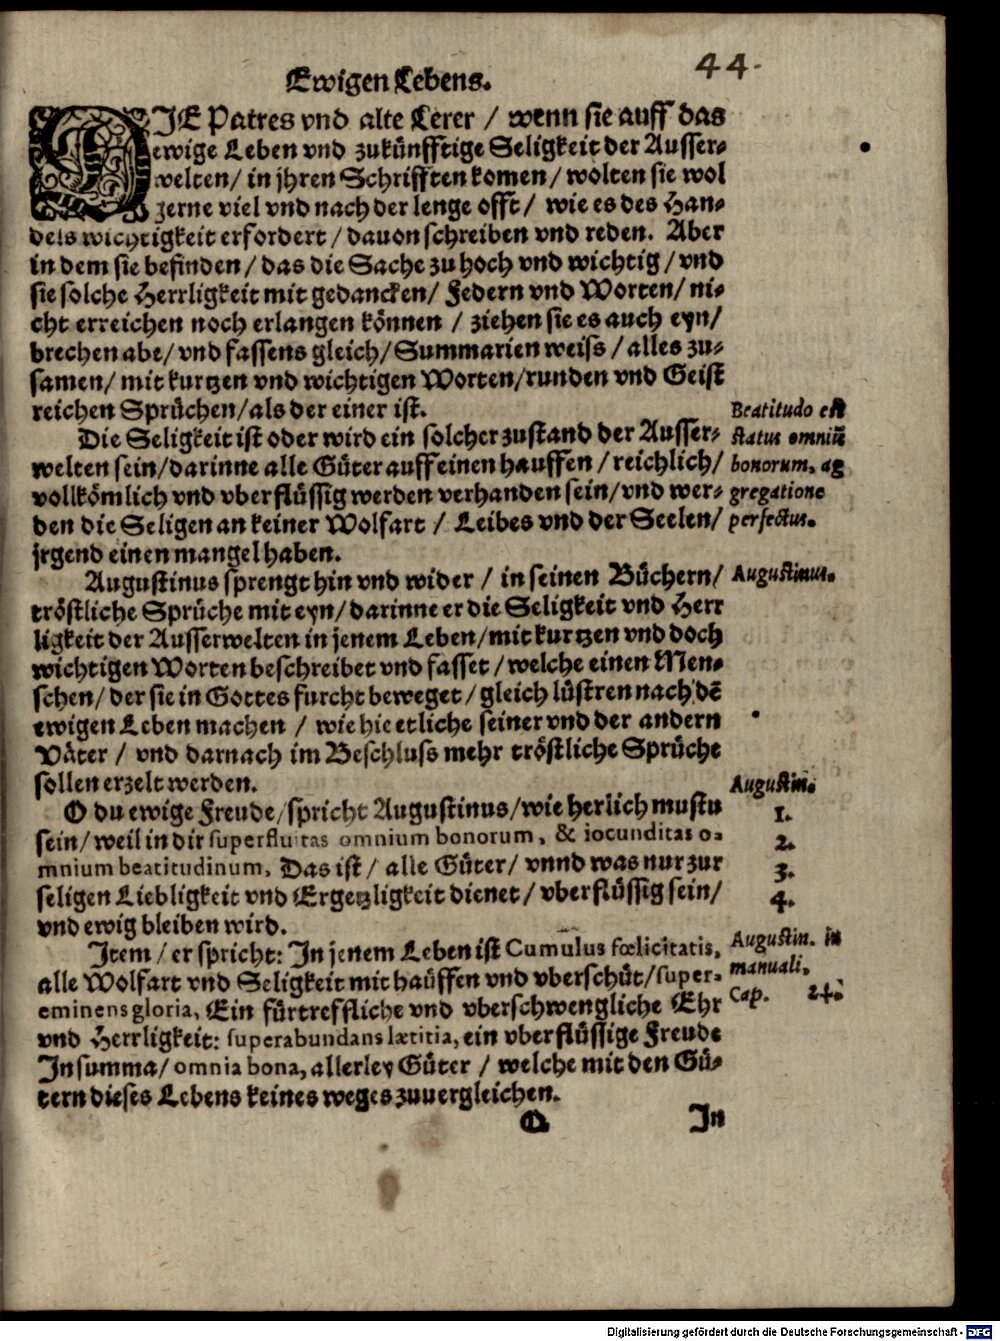 Ewigen Lebens.
44.
DIE Patres vnd alte Lerer / wenn sie auff das
ewige Leben vnd zukünfftige Seligkeit der Ausser⸗
welten / in jhren Schrifften komen / wolten sie wol
gerne viel vnd nach der lenge offt / wie es des Han⸗
dels wichtigkeit erfordert / dauon schreiben vnd reden. Aber
in dem sie befinden / das die Sache zu hoch vnd wichtig / vnd
sie solche Herrligkeit mit gedancken / Federn vnd Worten / ni⸗
cht erreichen noch erlangen können / ziehen sie es auch eyn /
brechen abe / vnd fassens gleich / Summarien weiss / alles zu⸗
samen / mit kurtzen vnd wichtigen Worten / runden vnd Geist
reichen Sprüchen / als der einer ist.
Die Seligkeit ist oder wird ein solcher zustand der Ausser⸗
welten sein / darinne alle Güter auff einen hauffen / reichlich /
vollkömlich vnd vberflüssig werden verhanden sein / vnd wer⸗
den die Seligen an keiner Wolfart / Leibes vnd der Seelen /
jrgend einen mangel haben.
Beatitudo est
status omniū
bonorum, ag
gregatione
perfectus.
Augustinus sprengt hin vnd wider / in seinen Büchern /
tröstliche Sprüche mit eyn / darinne er die Seligkeit vnd Herr
ligkeit der Ausserwelten in jenem Leben / mit kurtzen vnd doch
wichtigen Worten beschreibet vnd fasset / welche einen Men⸗
schen / der sie in Gottes furcht beweget / gleich lüstren nach dē
ewigen Leben machen / wie hie etliche seiner vnd der andern
Väter / vnd darnach im Beschluss mehr tröstliche Sprüche
sollen erzelt werden.
Augustinus.
O du ewige Freude / spricht Augustinus / wie herlich mustu
sein / weil in dir superfluitas omnium bonorum, & iocunditas o⸗
mnium beatitudinum, Das ist / alle Güter / vnnd was nur zur
seligen Liebligkeit vnd Ergetzligkeit dienet / vberflüssig sein /
vnd ewig bleiben wird.
Augustin.
1.
2.
3.
4.
Item / er spricht: In jenem Leben ist Cumulus fœlicitatis,
alle Wolfart vnd Seligkeit mit haüffen vnd vberschüt / super⸗
eminens gloria, Ein fürtreffliche vnd vberschwengliche Ehr
vnd Herrligkeit: superabundans lætitia, ein vberflüssige Freude
Insumma / omnia bona, allerley Güter / welche mit den Gü⸗
tern dieses Lebens keines weges zuuergleichen.
Augustin. in
manuali,
Cap. 24.
Q
In
Digitalisierung gefördert durch die Deutsche Forschungsgemeinschaft - DFG